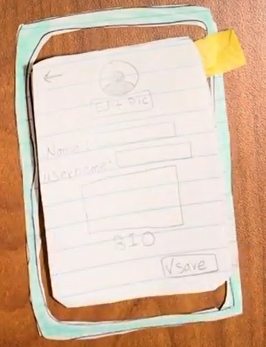 Edit Pic
Name:
username:
BIO
√ save